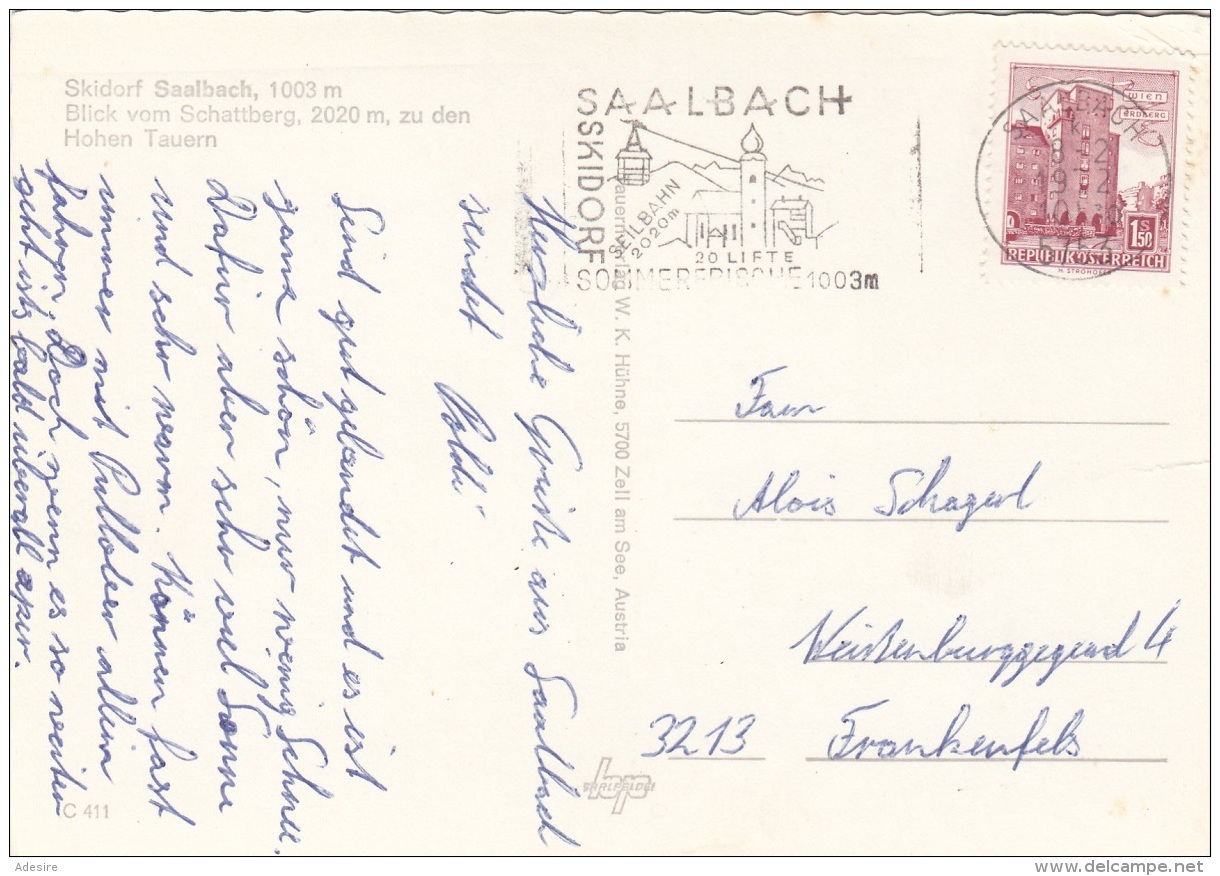 Skidorf Saalbach, 1003 m
Blick vom Schattberg, 2020 m, zu den
Hohen Tauern
SAALBACH
SKIDORF
SEILBAHN
2020m
20 LIFTE
SOMMERFRISCHE 1003m
SAALBACH
8.-2.
1972
5753
WIEN
ERDBERG
1.50
S
REPUBLIK ÖSTERREICH
H. STROHOFER
Herzliche Grüße aus Saalbach
sendet
Poldi
Sind gut gelandet und es ist
ganz schön, nur wenig Schnee.
Dafür aber sehr viel Sonne
und sehr warm. Können fast
immer mit Pullover allein
fahren. Doch wenn es so weiter
geht ists bald überall aper.
Tauernverlag W. K. Hühne, 5700 Zell am See, Austria
Fam
Alois Schagerl
Weißenburggegend 4
3213 Frankenfels
SAALFELDEN
C 411
Adesire
www.delcampe.net